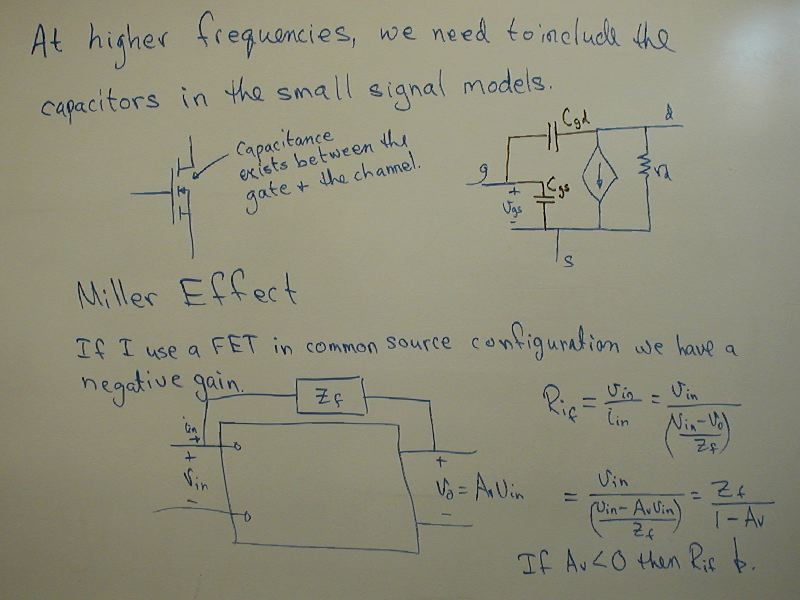 At higher frequencies, we need to include the
capacitors in the small signal models.
Capacitance
exists between the
gate & the channel.
Cgd
d
g
+
Cgs
Vgs
-
rd
s
Miller Effect
If I use a FET in common source configuration we have a
negative gain.
Zf
iin
+
Vin
-
+
Vo = AvVin
-
Rif = Vin/iin = Vin/((Vin-Vo)/Zf)
= Vin/((Vin-AvVin)/Zf) = Zf/(1-Av)
If Av<0 then Rif